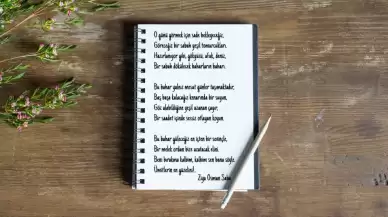 O günü görmek için sade bekleyeceğiz,
Göreceğiz bir sabah yeşil tomurcukları.
Hazırlanıyor gök, gökyüzü, ufuk, deniz,
Bir sabah dökülecek baharların baharı.
Bu bahar yalnız mesut günler taşımaktadır,
Baş başa kalacağız kenarında bir suyun,
Göz alabildiğine yeşil uzanan çayır,
Bir saadet içinde sessiz otlayan koyun.
Bu bahar güleceğiz en içten bir sevinçle,
Bir melek ordan bize uzatacak elini.
Beni bırakma kalbim, kalbim sen bana söyle,
Ümitlerin en güzelini!..
Ziya Osman Saba